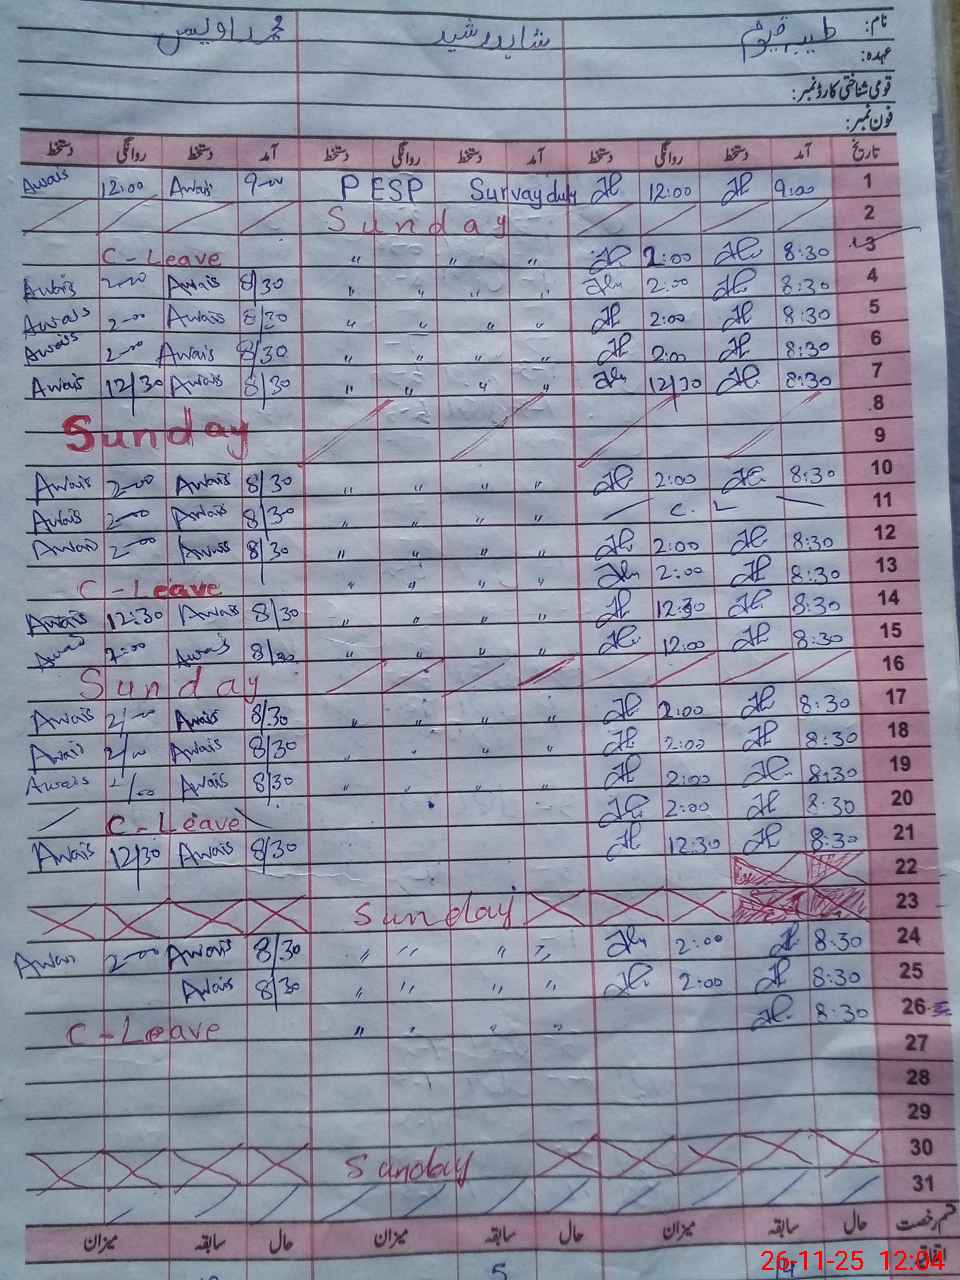 نام: طیبہ قیوم شاہد رشید محمد اویس
عہدہ:
قومی شناختی کارڈ نمبر:
فون نمبر:
تاریخ آمد دستخط روانگی دستخط آمد دستخط روانگی دستخط آمد دستخط روانگی دستخط
Awais 12:00 Awais 9-00 PESP Survay duty 12:00 9:00 1
Sunday 2
C-Leave " " " 2:00 8:30 3
Awais 2-00 Awais 8/30 " " " " 2:00 8:30 4
Awais 2-00 Awais 8/30 " " " " 2:00 8:30 5
Awais 2-00 Awais 8/30 " " " " 2:00 8:30 6
Awais 12/30 Awais 8/30 " " " " 12/30 8:30 7
8
Sunday 9
Awais 2-00 Awais 8/30 " " " " 2:00 8:30 10
Awais 2-00 Awais 8/30 " " " " C. L 11
Awais 2-00 Awais 8/30 " " " " 2:00 8:30 12
C-Leave " " " " 2:00 8:30 13
Awais 12:30 Awais 8/30 " " " " 12:30 8:30 14
Awais 2:00 Awais 8/30 " " " " 12:00 8:30 15
Sunday 16
Awais 2/00 Awais 8/30 " " " " 2:00 8:30 17
Awais 2/00 Awais 8/30 " " " 2:00 8:30 18
Awais 2/00 Awais 8/30 " " " " 2:00 8:30 19
C-Leave 2:00 8:30 20
Awais 12/30 Awais 8/30 12:30 8:30 21
22
Sunday 23
Awais 2-00 Awais 8/30 " " " " 2:00 8:30 24
Awais 8/30 " " " " 2:00 8:30 25
C-Leave " " " " 8:30 26
27
28
29
Sunday 30
31
قسم رخصت حال سابقہ میزان حال سابقہ میزان حال سابقہ میزان
5
26-11-25 12:04